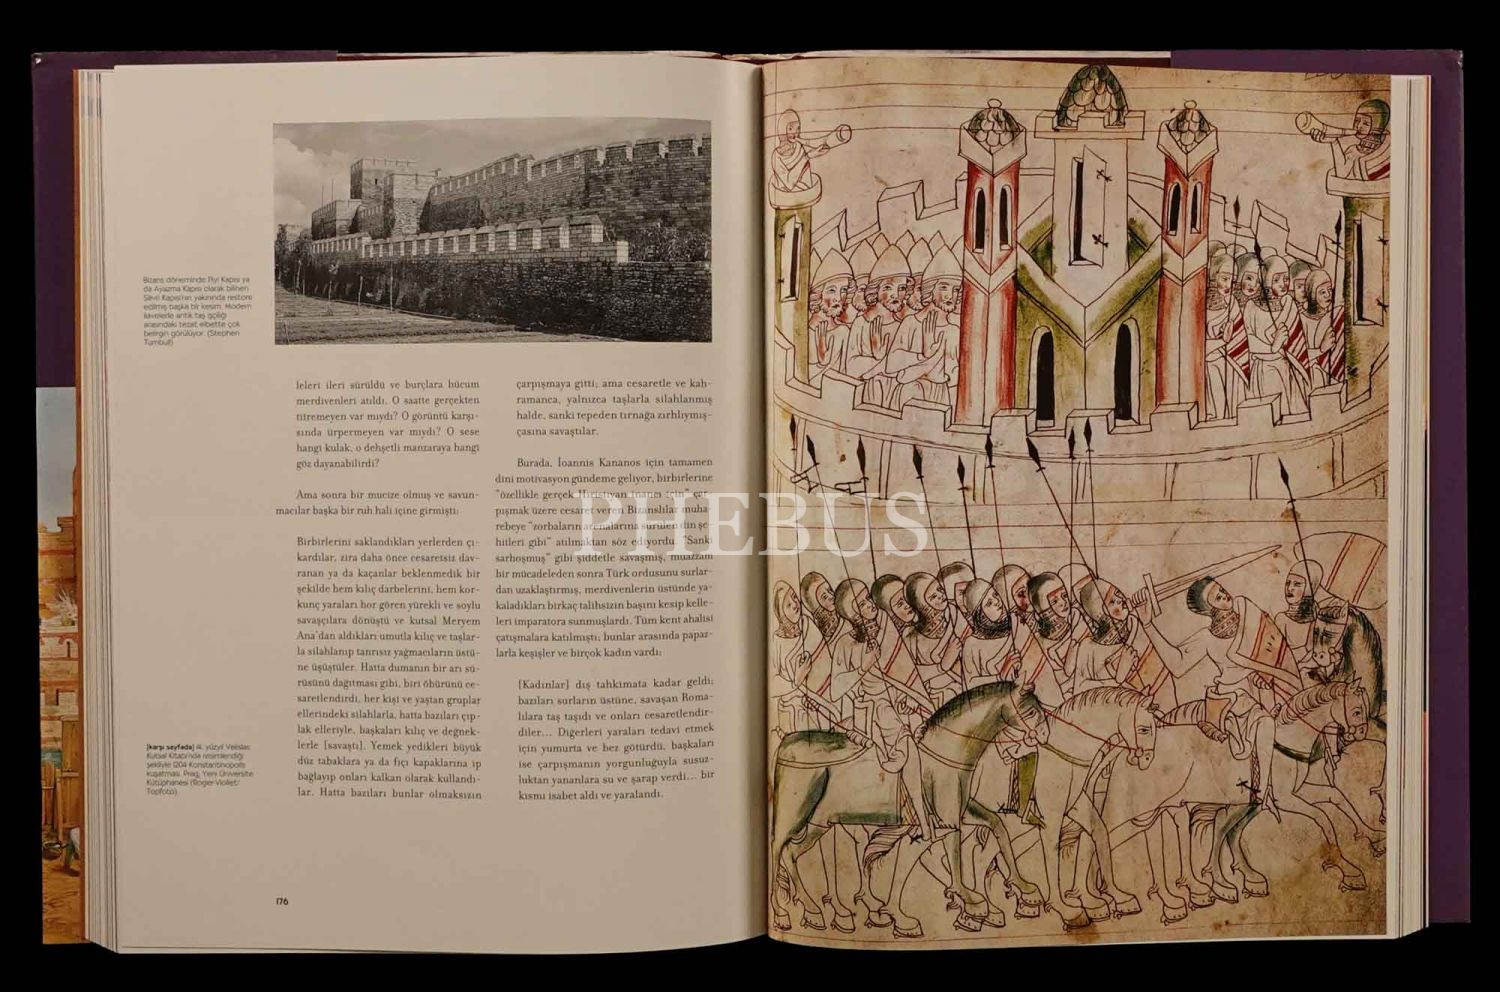 Bizans döneminde Piyi Kapısı ya
da Ayazma Kapısı olarak bilinen
Silivri Kapısı'nın yakınında restore
edilmiş başka bir kesim. Modern
ilavelerle antik taş işçiliği
arasındaki tezat elbette çok
belirgin görülüyor. (Stephen
Turnbull)
leleri ileri sürüldü ve burçlara hücum
merdivenleri atıldı. O saatte gerçekten
titremeyen var mıydı? O görüntü karşı-
sında ürpermeyen var mıydı? O sese
hangi kulak, o dehşetli manzaraya hangi
göz dayanabilirdi?
Ama sonra bir mucize olmuş ve savun-
macılar başka bir ruh hali içine girmişti:
Birbirlerini saklandıkları yerlerden çı-
kardılar, zira daha önce cesaretsiz dav-
ranan ya da kaçanlar beklenmedik bir
şekilde hem kılıç darbelerini, hem kor-
kunç yaraları hor gören yürekli ve soylu
savaşçılara dönüştü ve kutsal Meryem
Ana'dan aldıkları umutla kılıç ve taşlar-
la silahlanıp tanrısız yağmacıların üstü-
ne üşüştüler. Hatta dumanın bir arı sü-
rüsünü dağıtması gibi, biri öbürünü ce-
saretlendirdi, her kişi ve yaştan gruplar
ellerindeki silahlarla, hatta bazıları çıp-
lak elleriyle, başkaları kılıç ve değnek-
lerle [savaştı]. Yemek yedikleri büyük
düz tabaklara ya da fıçı kapaklarına ip
bağlayıp onları kalkan olarak kullandı-
lar. Hatta bazıları bunlar olmaksızın
çarpışmaya gitti; ama cesaretle ve kah-
ramanca, yalnızca taşlarla silahlanmış
halde, sanki tepeden tırnağa zırhlıymış-
çasına savaştılar.
Burada, İoannis Kananos için tamamen
dini motivasyon gündeme geliyor, birbirlerine
"özellikle gerçek Hıristiyan inancı için" çar-
pışmak üzere cesaret veren Bizanslılar muha-
rebeye "zorbaların arenalarına sürülen din şe-
hitleri gibi" atılmaktan söz ediyordu. "Sanki
sarhoşmuş" gibi şiddetle savaşmış, muazzam
bir mücadeleden sonra Türk ordusunu surlar-
dan uzaklaştırmış, merdivenlerin üstünde ya-
kaladıkları birkaç talihsizin başını kesip kelle-
leri imparatora sunmuşlardı. Tüm kent ahalisi
çatışmalara katılmıştı; bunlar arasında papaz-
larla keşişler ve birçok kadın vardı;
[Kadınlar] dış tahkimata kadar geldi;
bazıları surların üstüne, savaşan Roma-
lılara taş taşıdı ve onları cesaretlendir-
diler... Diğerleri yaraları tedavi etmek
için yumurta ve bez götürdü, başkaları
ise çarpışmanın yorgunluğuyla susuz-
luktan yananlara su ve şarap verdi... bir
kısmı isabet aldı ve yaralandı.
[karşı sayfada] 14. yüzyıl Velislav
Kutsal Kitabı'nda resimlendiği
şekliyle 1204 Konstantinopolis
kuşatması. Prag, Yeni Üniversite
Kütüphanesi (Roger-Viollet/
Topfoto)
176
PHEBUS